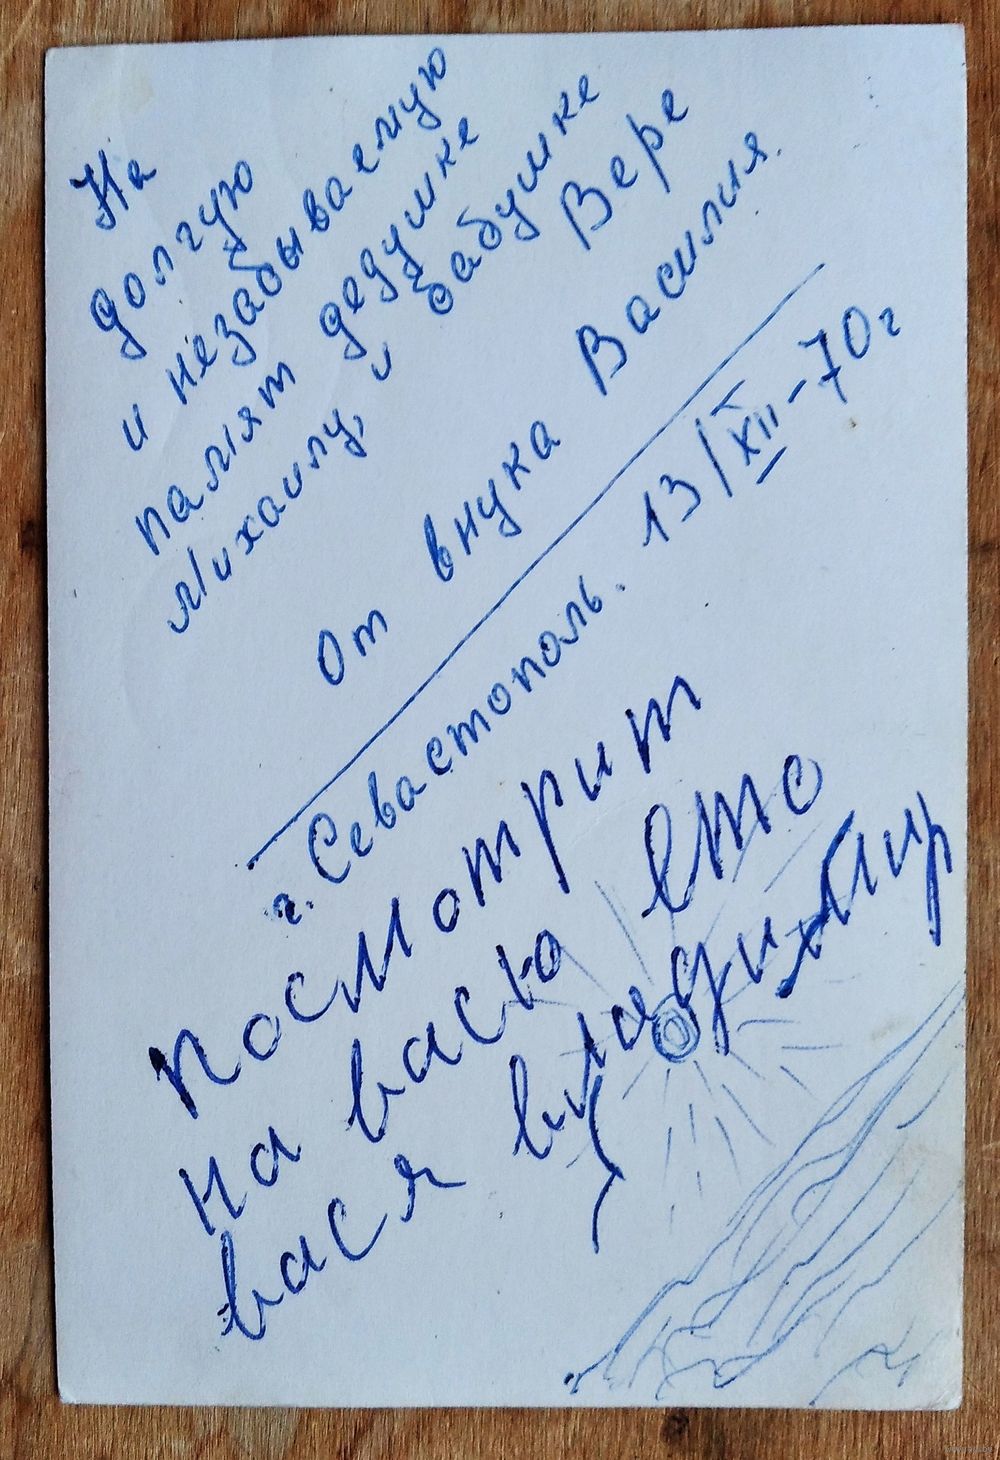 На
долгую
и незабываемую
памıят дедушке
Михаилу, и бабушке
Вере
От внука Василия.
г. Севастополь. 13/XII-70г
посмотрит
на васю ето
вася владимир